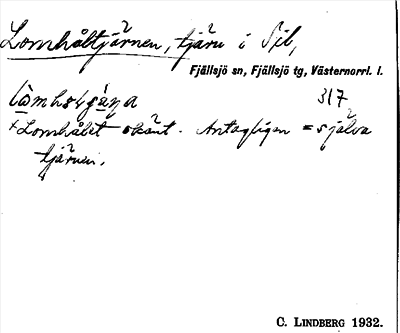 Lomhåltjärnen, tjärn i Sil,
Fjällsjö sn, Fjällsjö tg, Västernorrl. l.
317
*Lomhålet okänt. Antagligen = själva
tjärnen.
C. LINDBERG 1932.